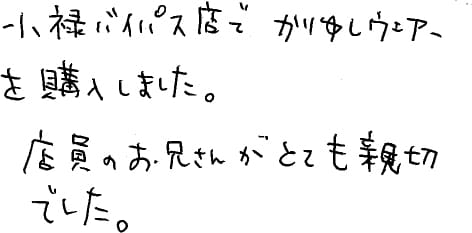 小禄バイパス店で かりゆしウェアー
を購入しました。
店員のお兄さんがとても親切
でした。